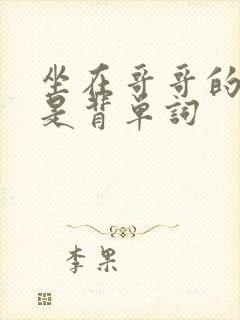 坐在哥哥的
是背单词
李果